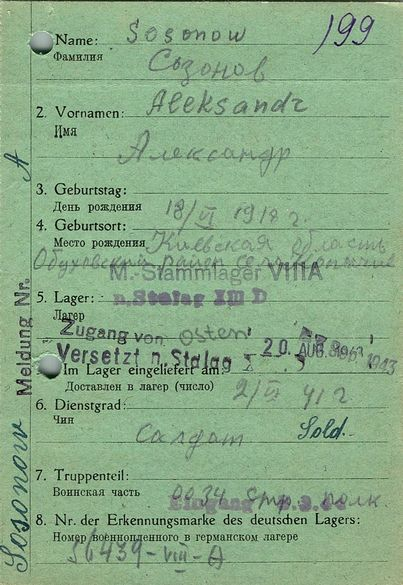 Name: Sosonow 199
Фамилия Созонов
2. Vornamen: Aleksandr
Имя
Александр
3. Geburtstag:
День рождения 18/VI 1918 г.
4. Geburtsort: Киевская область
Место рождения
Обуховский район село
M.-Stammlager VIIIA
5. Lager: n. Stalag XIII D
Лагер
Zugang von Osten
Versetzt n. Stalag 20. AUG. 1943
Im Lager eingeliefert am:
Доставлен в лагер (число) 2/VI 41 г
6. Dienstgrad:
Чин
Салдат Sold.
7. Truppenteil:
Воинская часть 0034 Стр. полк.
Eingang
8. Nr. der Erkennungsmarke des deutschen Lagers:
Номер военнопленного в германском лагере
56439-VIII-A
Meldung Nr.
Sosonow A